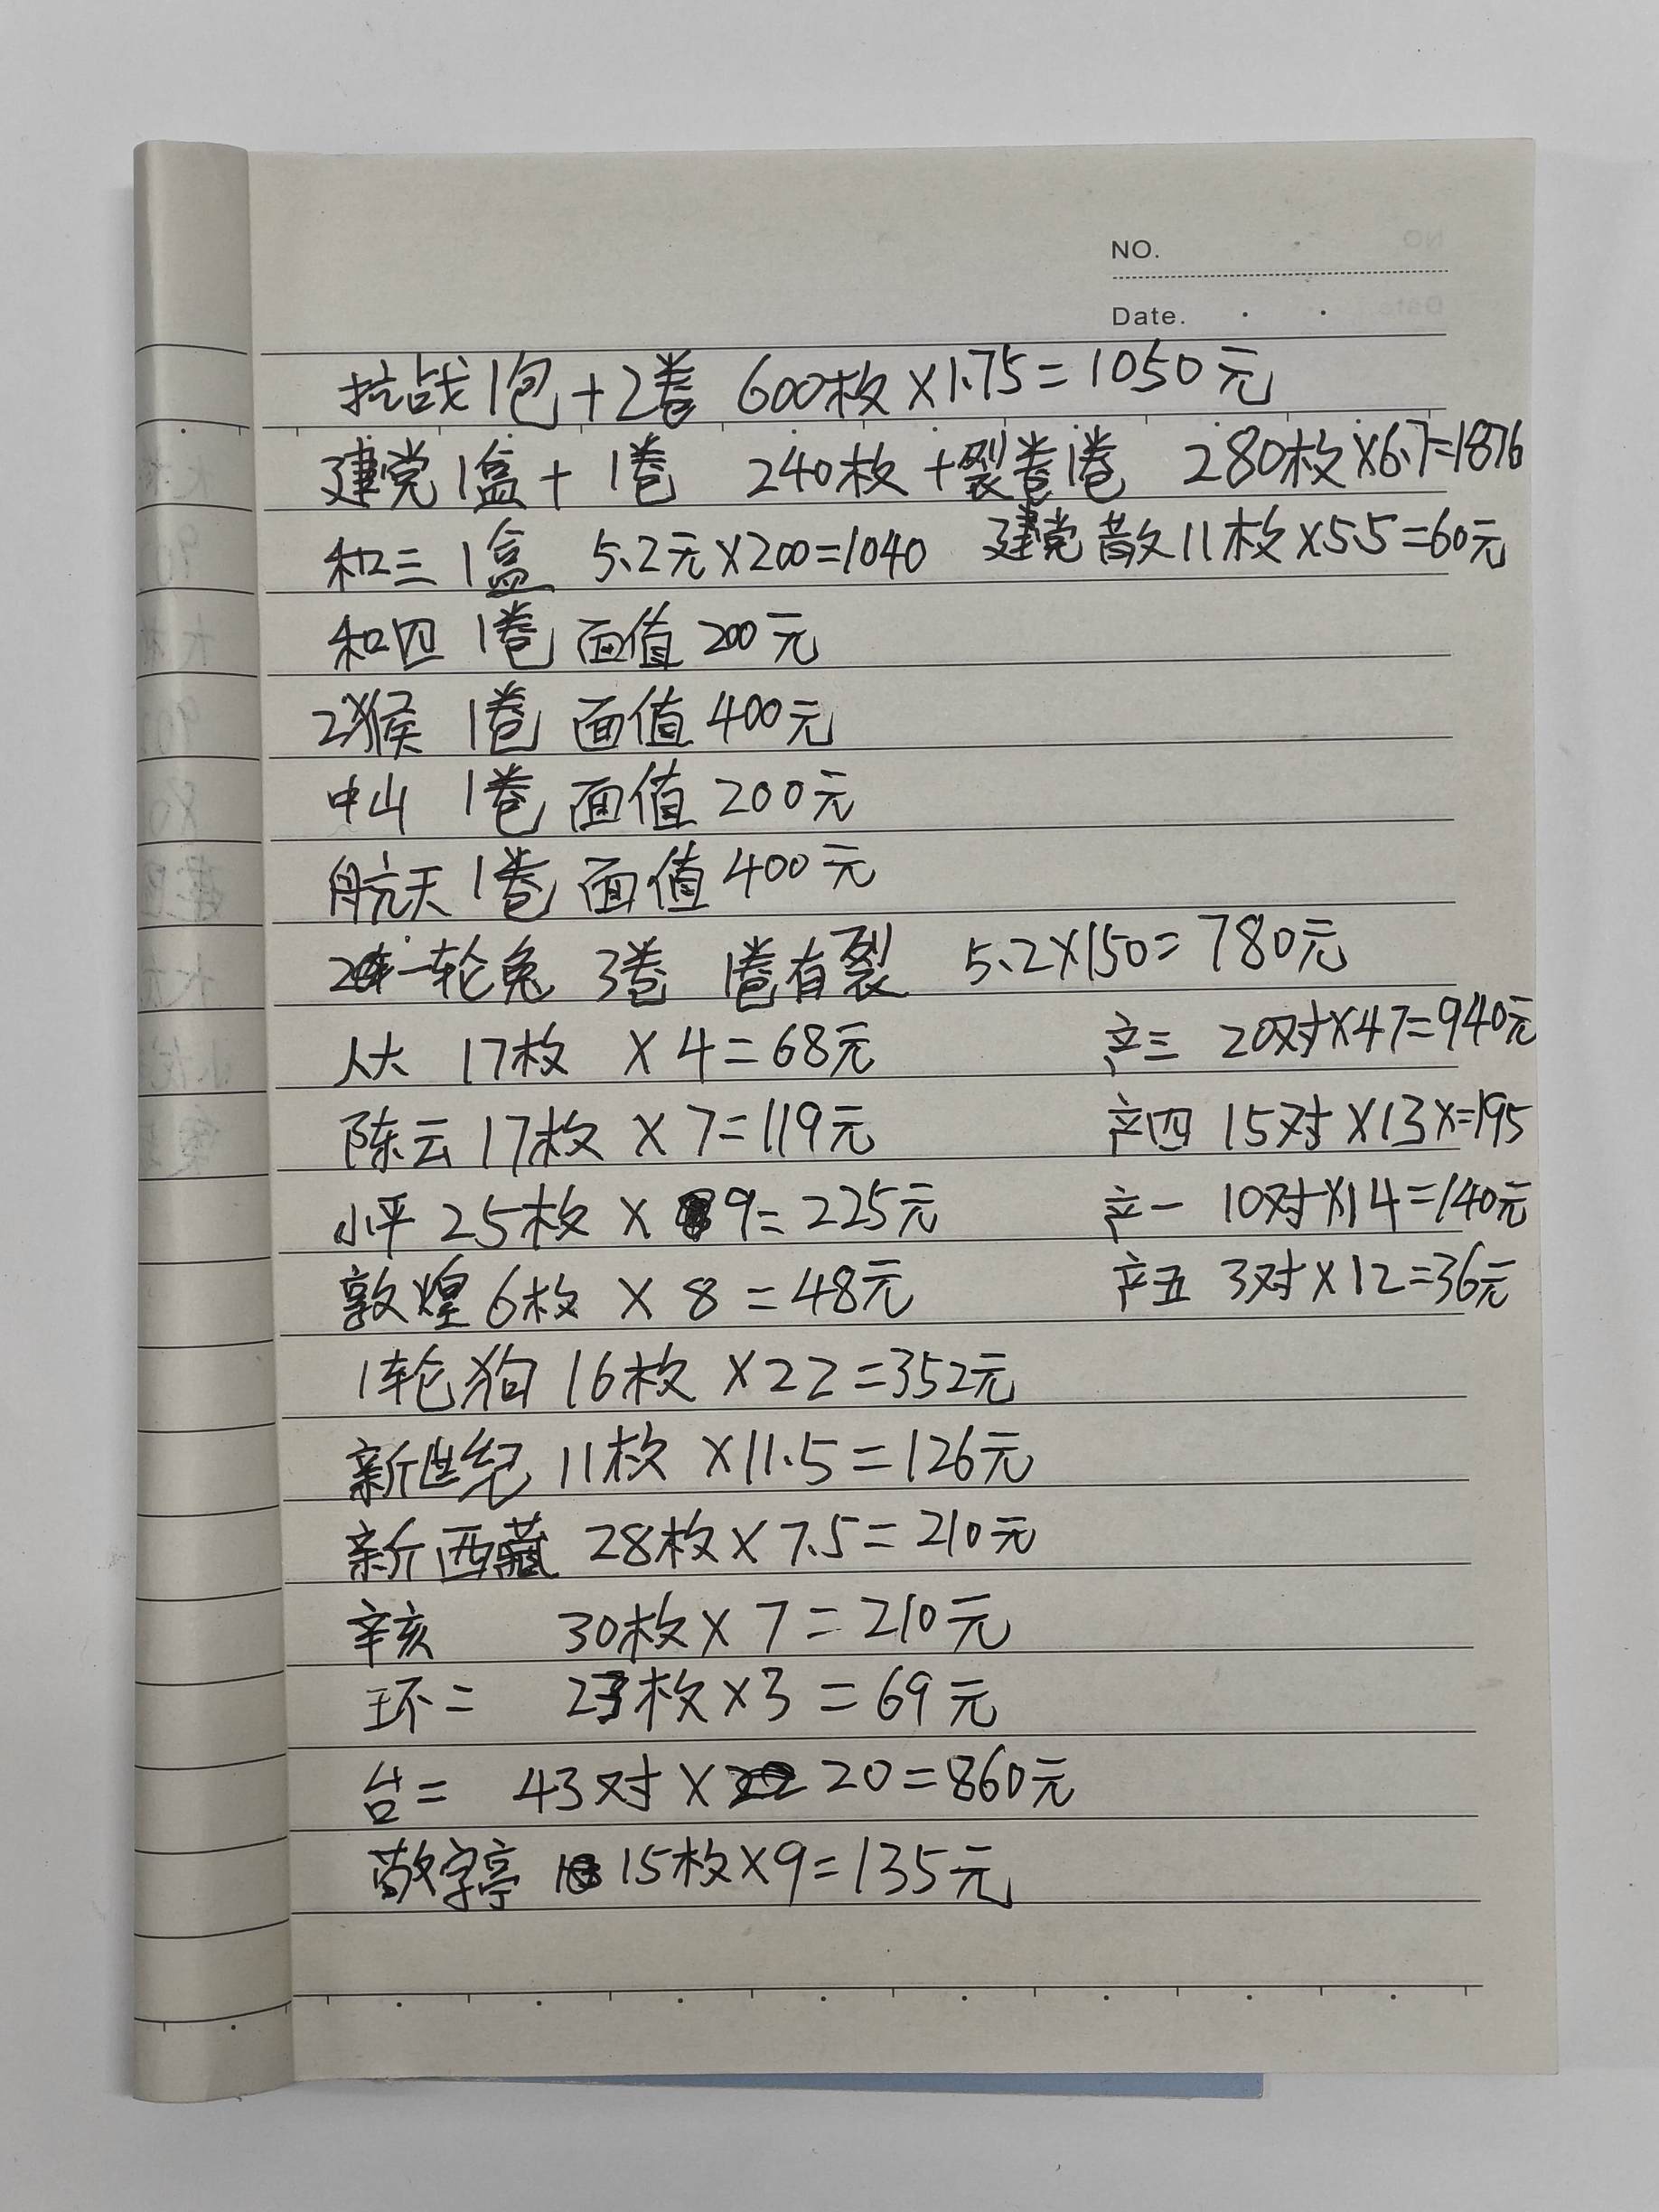 NO.
Date.
抗战1包+2卷 600枚×1.75=1050元
建党1盒+1卷 240枚+裂卷1卷 280枚×6.7=1876
和三1盒 5.2元×200=1040 建党散11枚×5.5=60元
和四 1卷 面值200元
2猴 1卷 面值400元
中山 1卷 面值200元
航天1卷 面值400元
2轮兔 3卷 1卷有裂 5.2×150=780元
人大 17枚 ×4=68元 产三 20对×47=940元
陈云17枚 ×7=119元 产四 15对×13×=195
小平25枚 ×9=225元 产一 10对×14=140元
敦煌6枚 ×8=48元 产五 3对×12=36元
1轮狗 16枚 ×22=352元
新世纪 11枚 ×11.5=126元
新西藏 28枚×7.5=210元
辛亥 30枚×7=210元
环二 23枚×3=69元
台二 43对×20=860元
敬字亭 15枚×9=135元